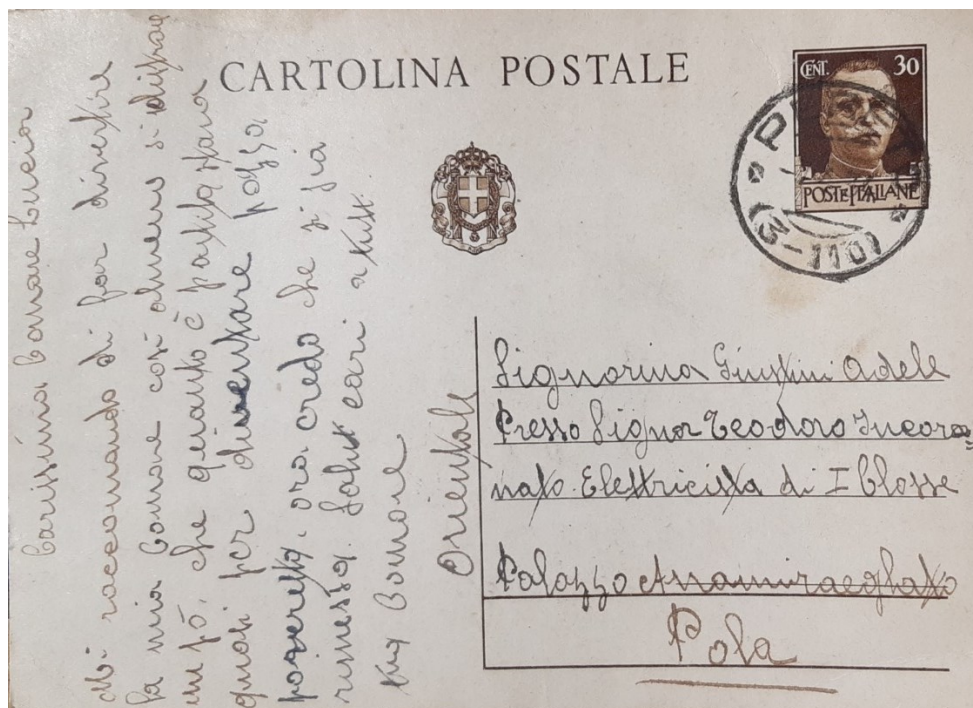 CARTOLINA POSTALE
CENT. 30
POSTE ITALIANE
(3-110)
Carissima Comare Lucia
Mi raccomando di far divertire
la mia Comare così almeno si
un pò, che quanto è
quasi per diventare pazza
poveretta, ora credo che si sia
rimessa. Saluti cari a tutti
tua Comare
Orientale
Signorina Giustini Adele
Presso Signor Teodoro Incoro=
nato Elettricista di I Classe
Palazzo Ammiragliato
Pola